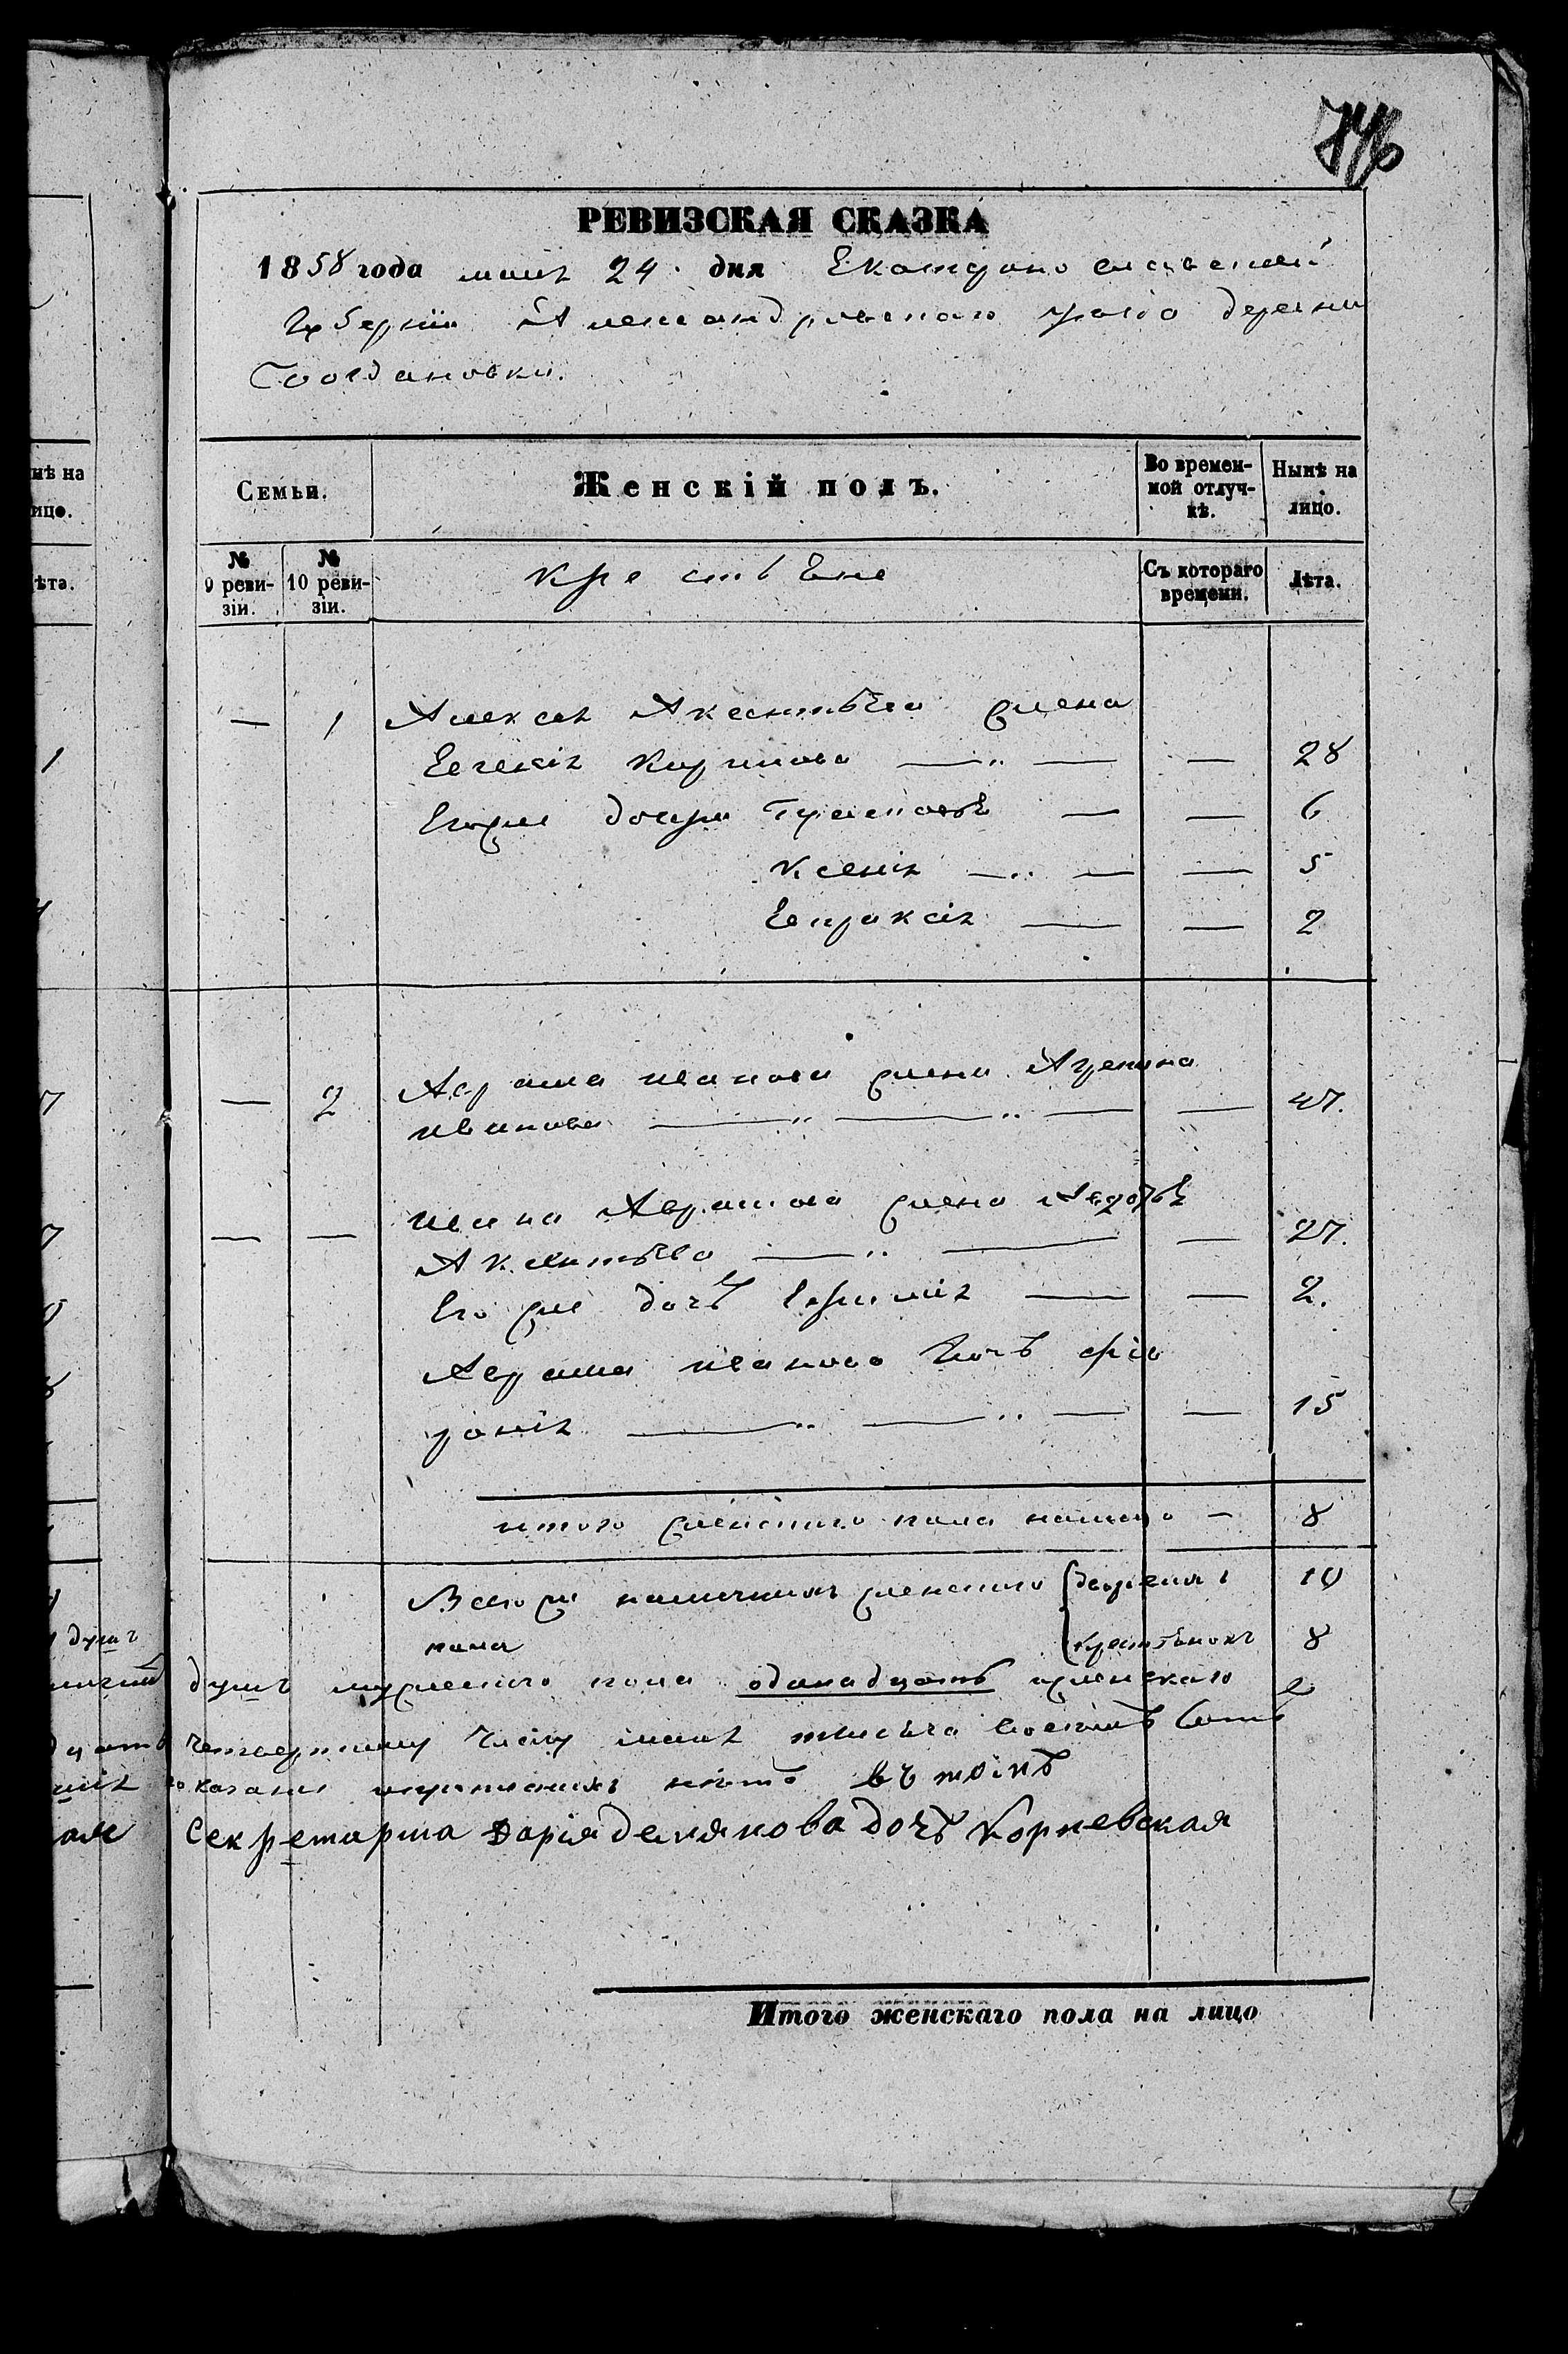 746
РЕВИЗСКАЯ СКАЗКА
1858 года маия 24 дня Екатериносла­вской
Губернии Александровского уезда деревни
Богдановки.
нѣ на
ицо.
ѣта.
Семьи.
Женскій полъ.
Во времен-
ной отлуч-
кѣ.
Нынѣ на
лицо.
№
9 реви-
зіи.
№
10 реви-
зіи.
Крестьяне
Съ котораго
времени.
Лѣта.
— 1 Алексея Аксентьева жена
Евгения Каримова — — — 28
Его же дочери — — 6
Ксения — — — 5
Евпраксия — — 2
— 2 Аврама Иванова жена Агрепина
Иванова — — — — 47.
Ивана Аврамова жена Авдотья
— — Аксентьева — — — 27.
Его же дочь — — 2.
Аврама Иванова дочь
— — — — 15
итого женского пола налицо — 8
Всего же наличных женского 10
пола крестьянокъ 8
душъ мужеского пола одинадцать женскаго
числу маия тысяча восемьсот
нетъ въ томъ
Секретарша Дария Демянова дочь Корневская
Итого женскаго пола на лицо